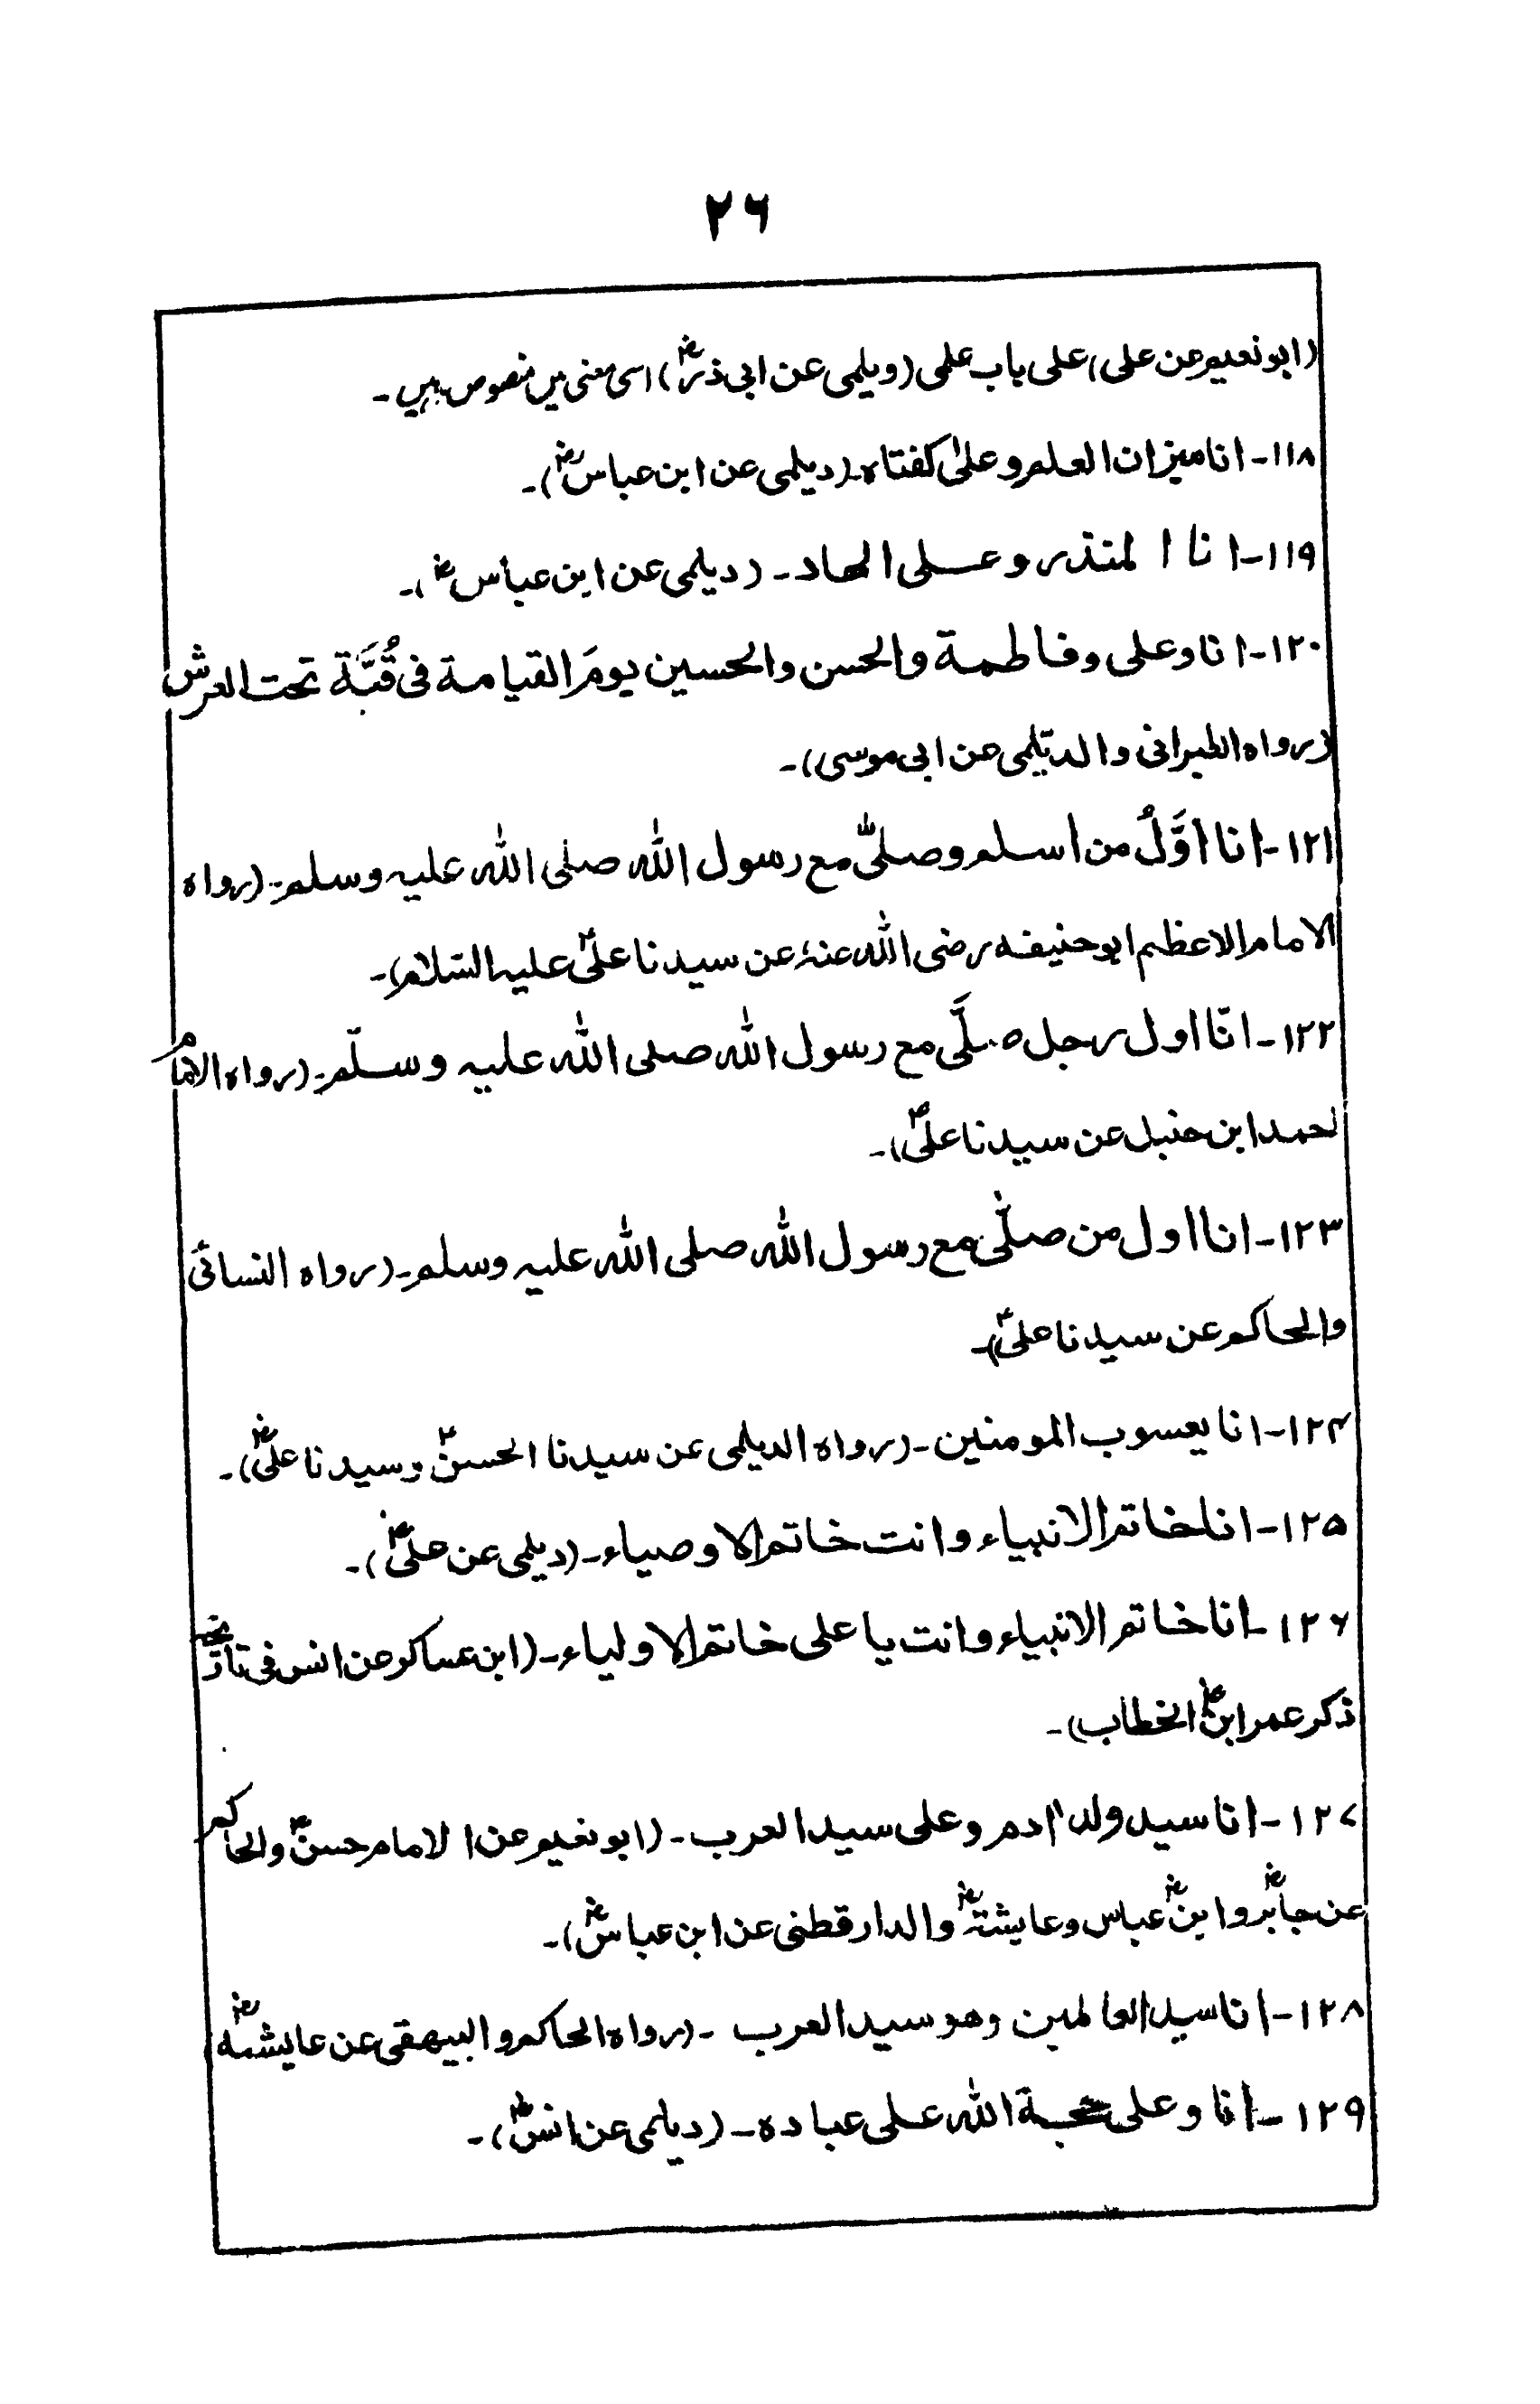 ۲۶
(ابو نعیم عن علی) علی باب علمی (ویلمی عن ابی ذرؓ) اسی معنی میں منصوص ہیں۔
۱۱۸۔ انا میزان العلم و علیٰ کفتاہ۔ (دیلمی عن ابن عباسؓ)۔
۱۱۹۔ انا المنذر و علی الهاد۔ (دیلمی عن ابن عباسؓ)۔
۱۲۰۔ انا وعلی و فاطمة والحسن والحسین یومَ القیامة فی قُبَّة تحت العرش
(رواہ الطبرانی والدیلمی عن ابی موسی)۔
۱۲۱۔ انا اوَّلُ من اسلم وصلّٰی مع رسول اللّٰہ صلی اللّٰہ علیہ وسلم۔ (رواہ
الامام الاعظم ابو حنیفہ رضی اللّٰہ عنہٗ عن سیدنا علیؑ علیہ السّلام)۔
۱۲۲۔ انّا اول رجل صلَّی مع رسول اللّٰہ صلی اللّٰہ علیہ وسلّم۔ (رواہ الامام
احمد ابن حنبل عن سیدنا علیؑ)۔
۱۲۳۔ انا اول من صلّٰی مع رسول اللّٰہ صلی اللّٰہ علیہ وسلم۔ (رواہ النسائی
والحاکم عن سیدنا علیؑ)۔
۱۲۴۔ انا یعسوب المومنین۔ (رواہ الدیلمی عن سیدنا الحسنؑ و سیدنا علیؓ)۔
۱۲۵۔ انا خاتم الانبیاء وانت خاتم الاوصیاء۔ (دیلمی عن علیؓ)۔
۱۲۶۔ انا خاتم الانبیاء وانت یا علی خاتم الاولیاء۔ (ابن عساکر عن انس فی تاریخہ
ذکر عمر ابنؓ الخطاب)۔
۱۲۷۔ انا سید ولد اٰدم و علی سید العرب۔ (ابو نعیم عن الامام حسنؑ والحاکم
عن جابرؓ وابنؓ عباس و عایشتہؓ والدار قطنی عن ابن عباسؓ)۔
۱۲۸۔ انا سید العالمین وھو سید العرب۔ (رواہ الحاکم والبیہقی عن عایشہؓ)
۱۲۹۔ انا و علی حجة اللّٰہ علی عبادہ۔ (دیلمی عن انسؓ)۔